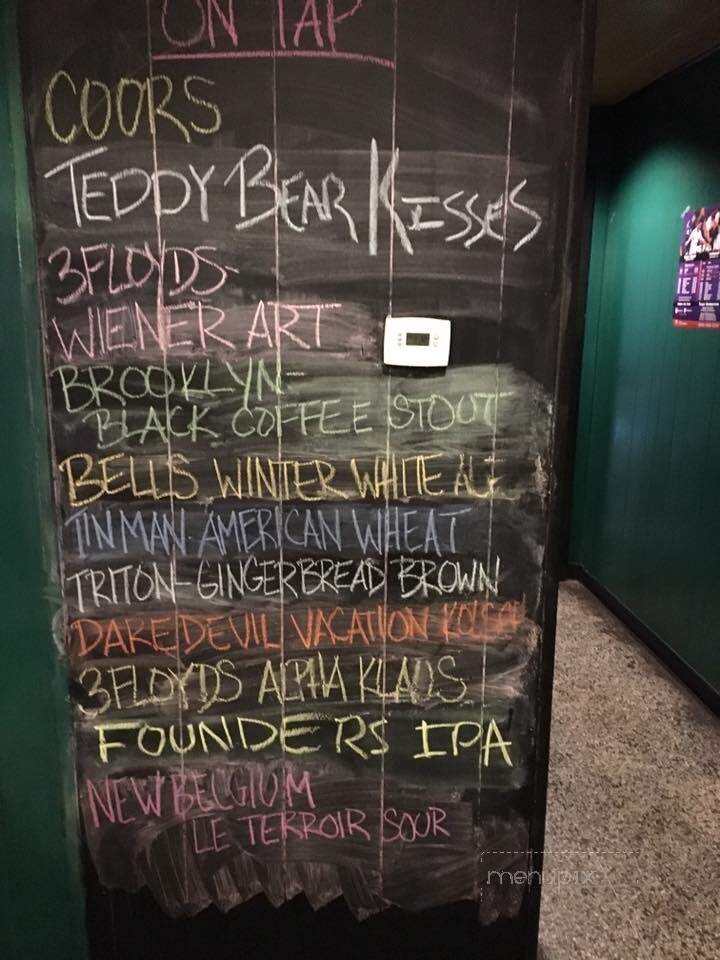 ON TAP
COORS
TEDDY BEAR KISSES
3FLOYDS-
WIENER ART
BROOKLYN-
BLACK COFFEE STOUT
BELLS WINTER WHITE ALE
TINMAN-AMERICAN WHEAT
TRITON-GINGERBREAD BROWN
DAREDEVIL VACATION KOLSCH
3FLOYDS ALPHA KLAUS
FOUNDERS IPA
NEW BELGIUM
LE TERROIR SOUR
menupix